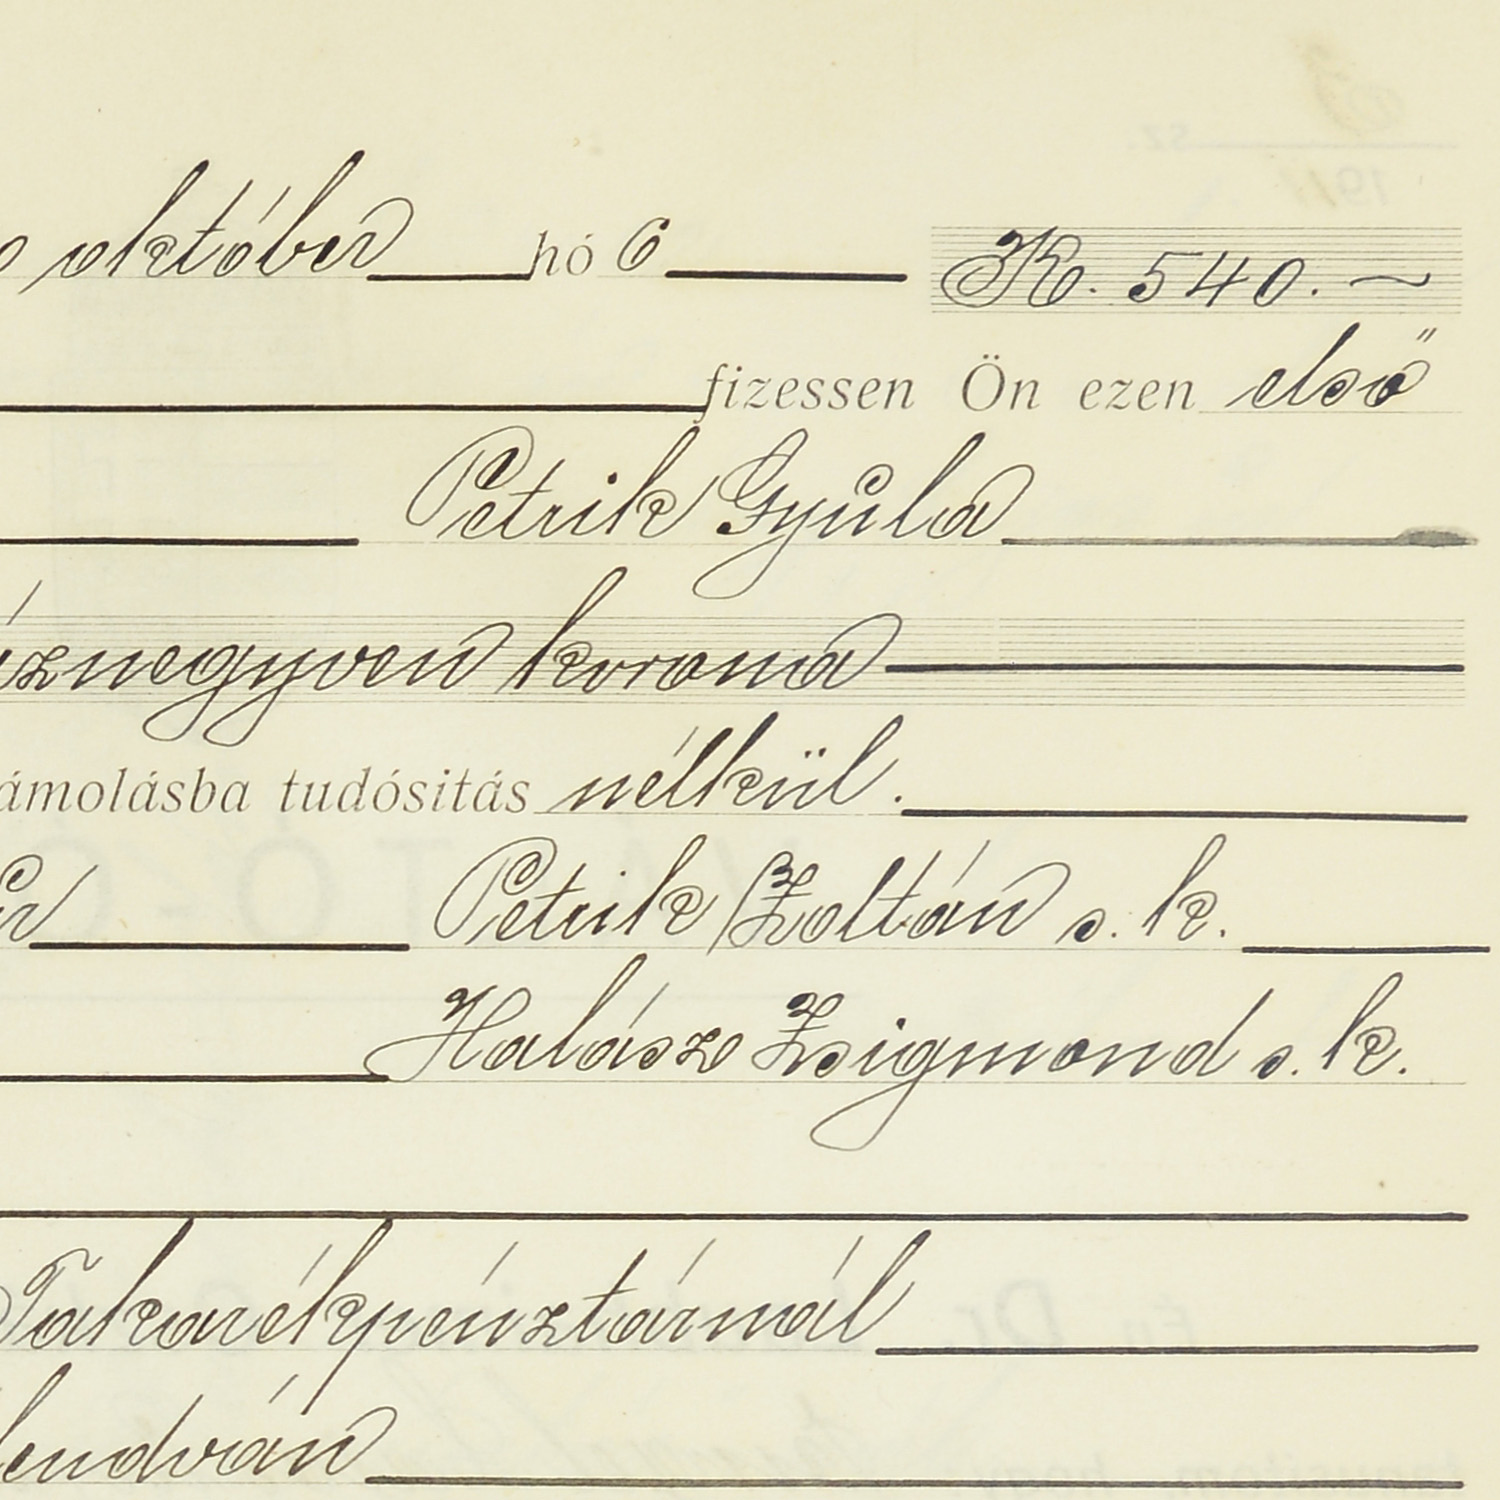 október hó 6 K. 540. ~
fizessen Ön ezen első
Petrik Gyula
znegyven korona
ámolásba tudósitás nélkül.
Petrik Zoltán s. k.
Halász Zsigmond s. k.
Takarékpénztárnál
lendván